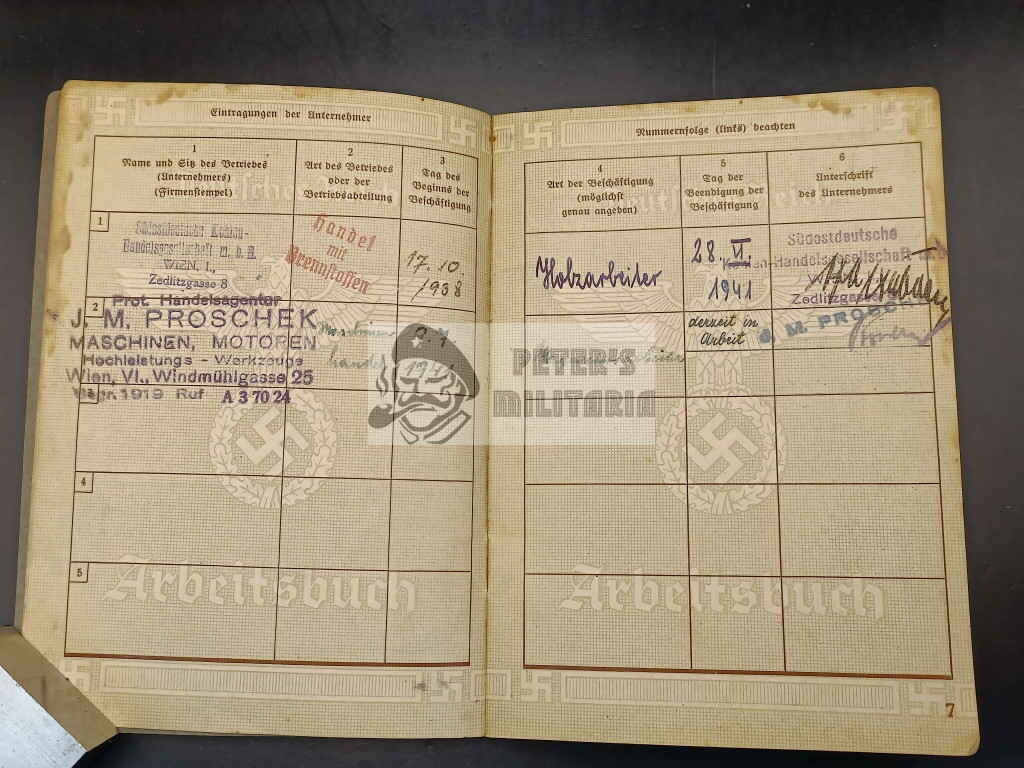 Eintragungen der Unternehmer
1
Name und Sitz des Betriebes
(Unternehmers)
(Firmenstempel)
2
Art des Betriebes
oder der
Betriebsabteilung
3
Tag des
Beginns der
Beschäftigung
1
Südostdeutsche Kohlen-
Handelsgesellschaft m. b. H.
WIEN, I.,
Zedlitzgasse 8
Handel
mit
Brennstoffen
17. 10.
1938
2
Prot. Handelsagentur
J. M. PROSCHEK
MASCHINEN, MOTOREN
Hochleistungs - Werkzeuge
Wien, VI., Windmühlgasse 25
Gegr. 1919 Ruf A 3 70 24
handel
1941
3
4
5
Arbeitsbuch
Nummernfolge (links) beachten
4
Art der Beschäftigung
(möglichst
genau angeben)
5
Tag der
Beendigung der
Beschäftigung
6
Unterschrift
des Unternehmers
Holzarbeiter
28. VI.
1941
Südostdeutsche
Kohlen-Handelsgesellschaft m.b.
Zedlitzgasse
derzeit in
Arbeit
J. M. PROSCH
PETER'S
MILITARIA
Arbeitsbuch
7